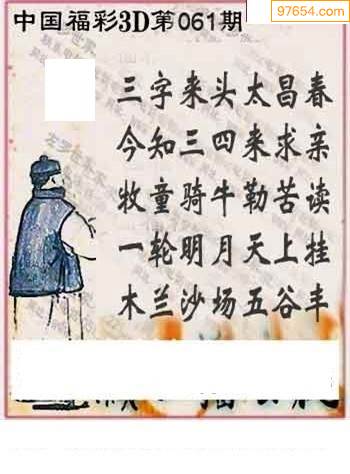 97654.com
中国福彩3D第061期
三字来头太昌春
今知三四来求亲
牧童骑牛勒苦读
一轮明月天上挂
木兰沙场五谷丰